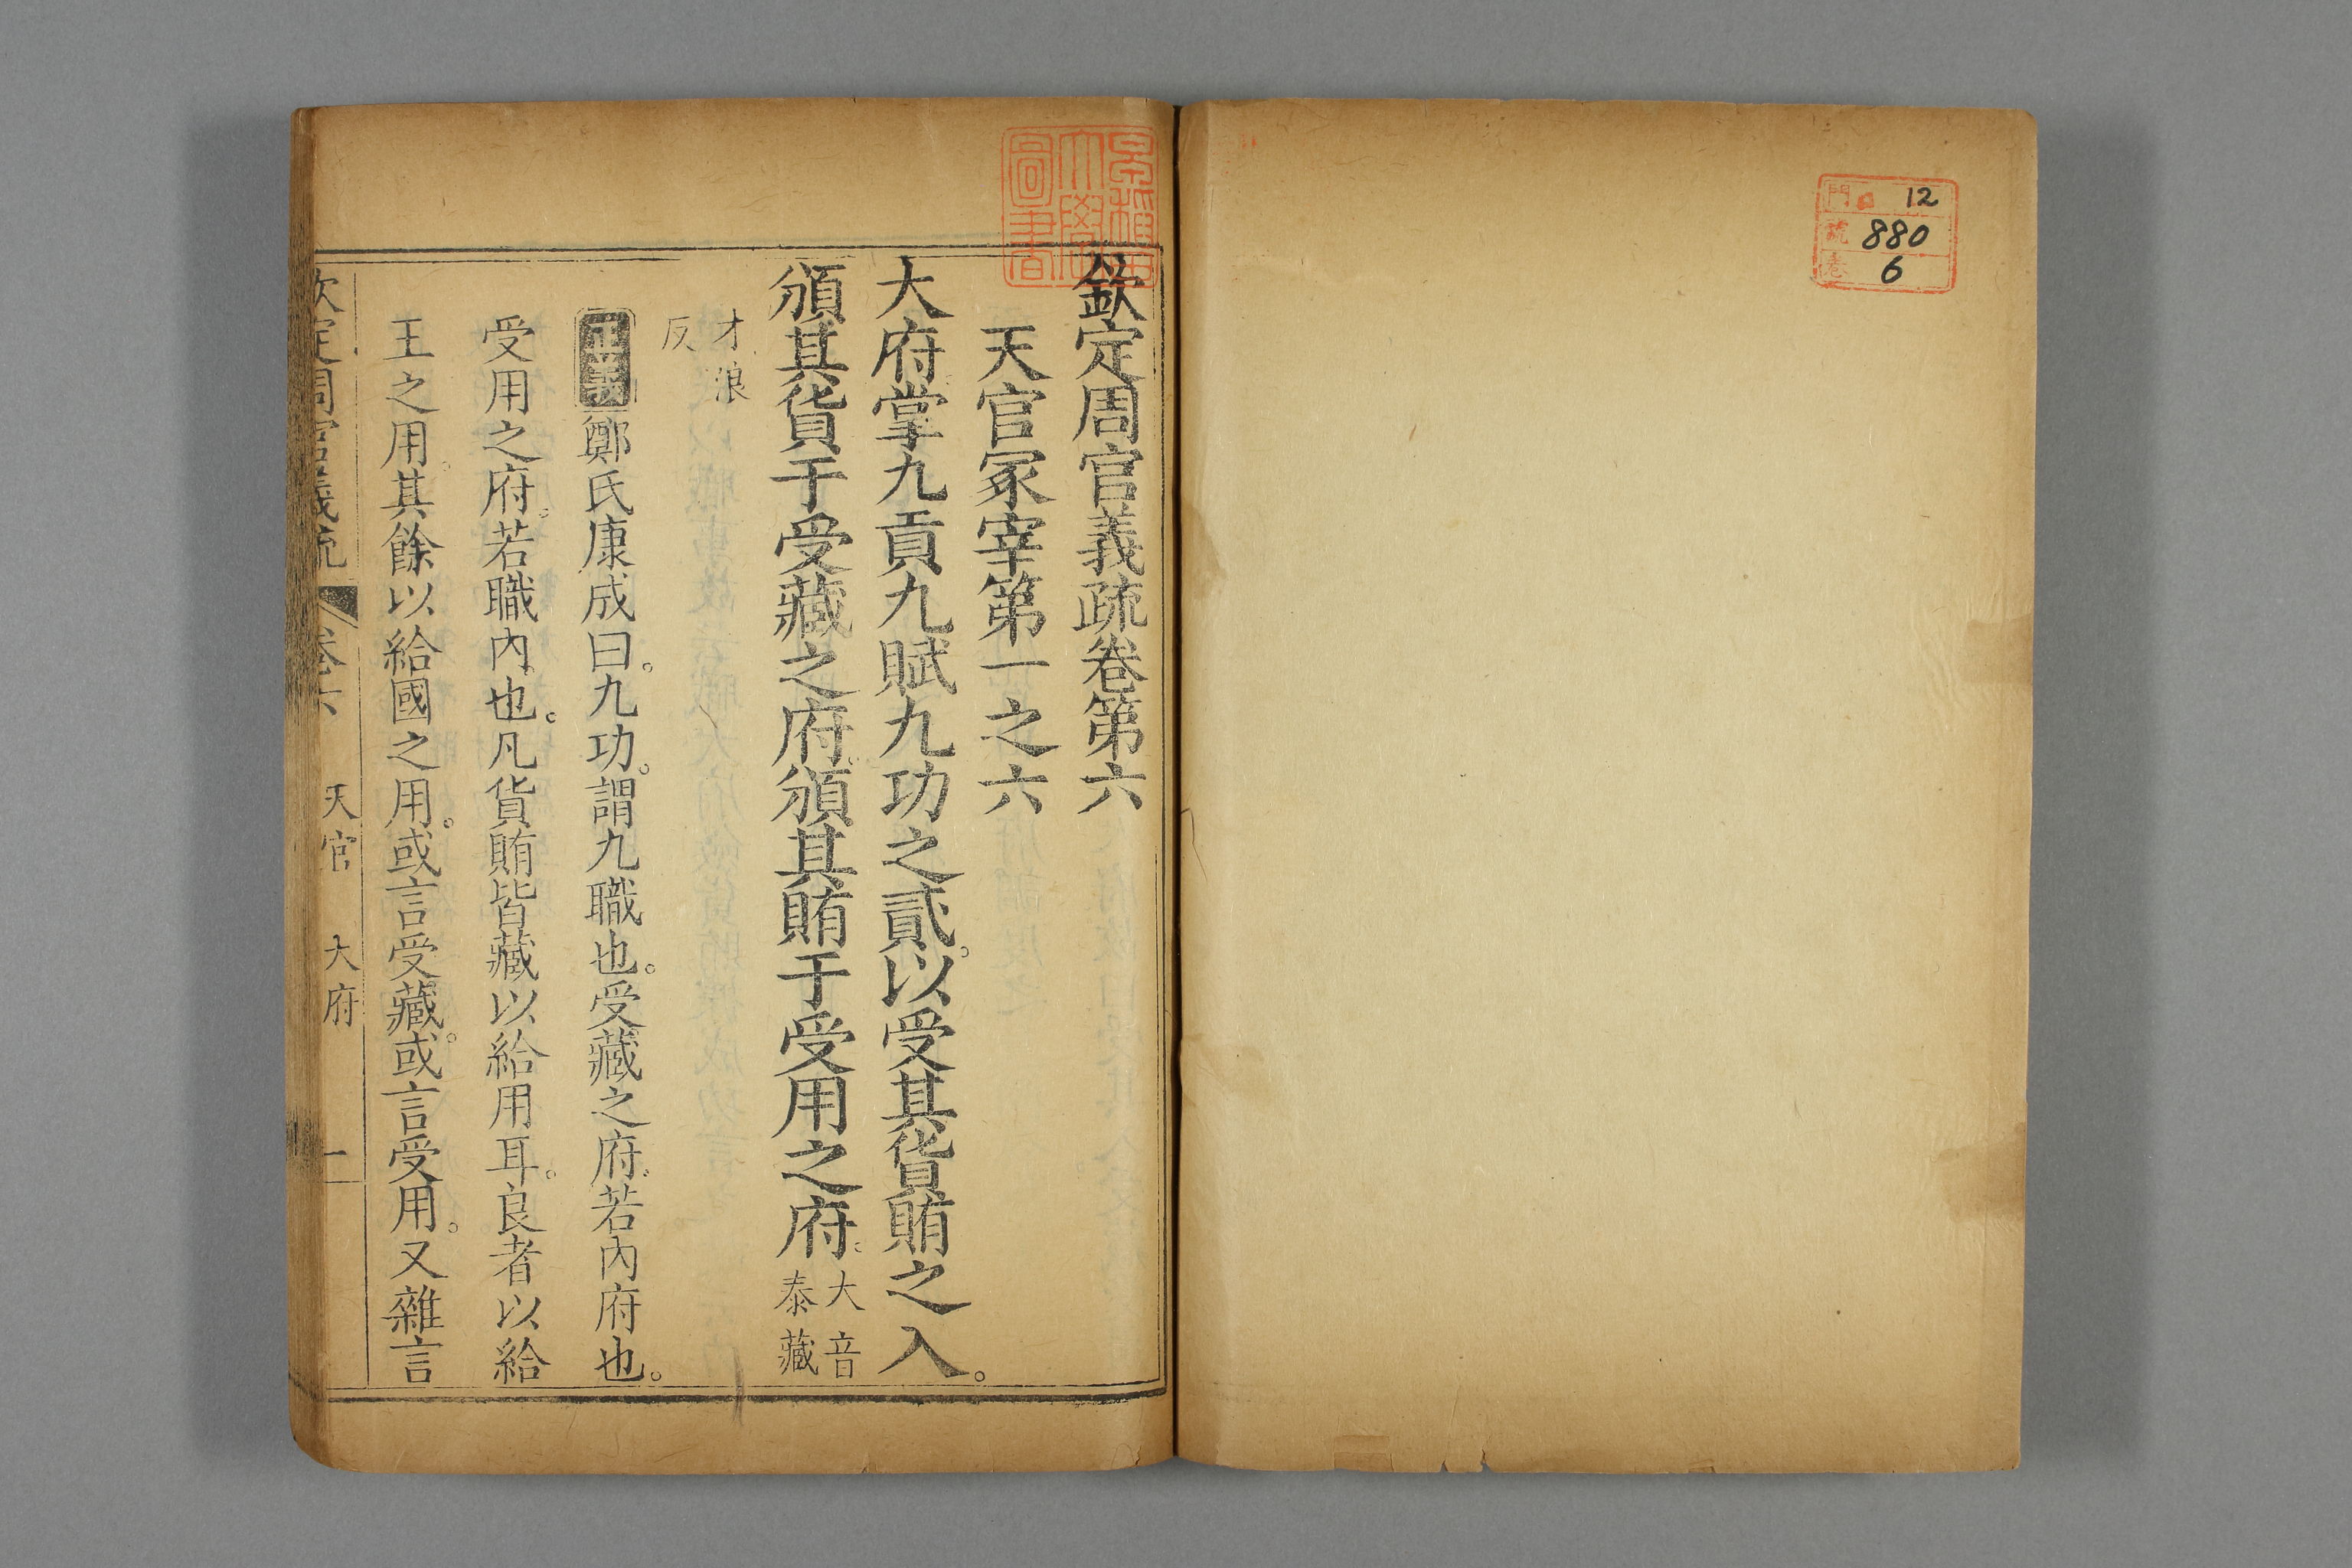 門 12
號 880
卷 6
早稲田大學圖書
欽定周官義疏卷第六
天官冢宰第一之六
大府掌九貢九賦九功之貳。以受其貨賄之入。
頒其貨于受藏之府。頒其賄于受用之府。大音泰藏
才浪反
正義鄭氏康成曰。九功。謂九職也。受藏之府。若內府也。
受用之府。若職內也。凡貨賄皆藏以給用耳。良者以給
王之用。其餘以給國之用。或言受藏。或言受用。又雜言
欽定周官義疏 卷六 天官 大府 一